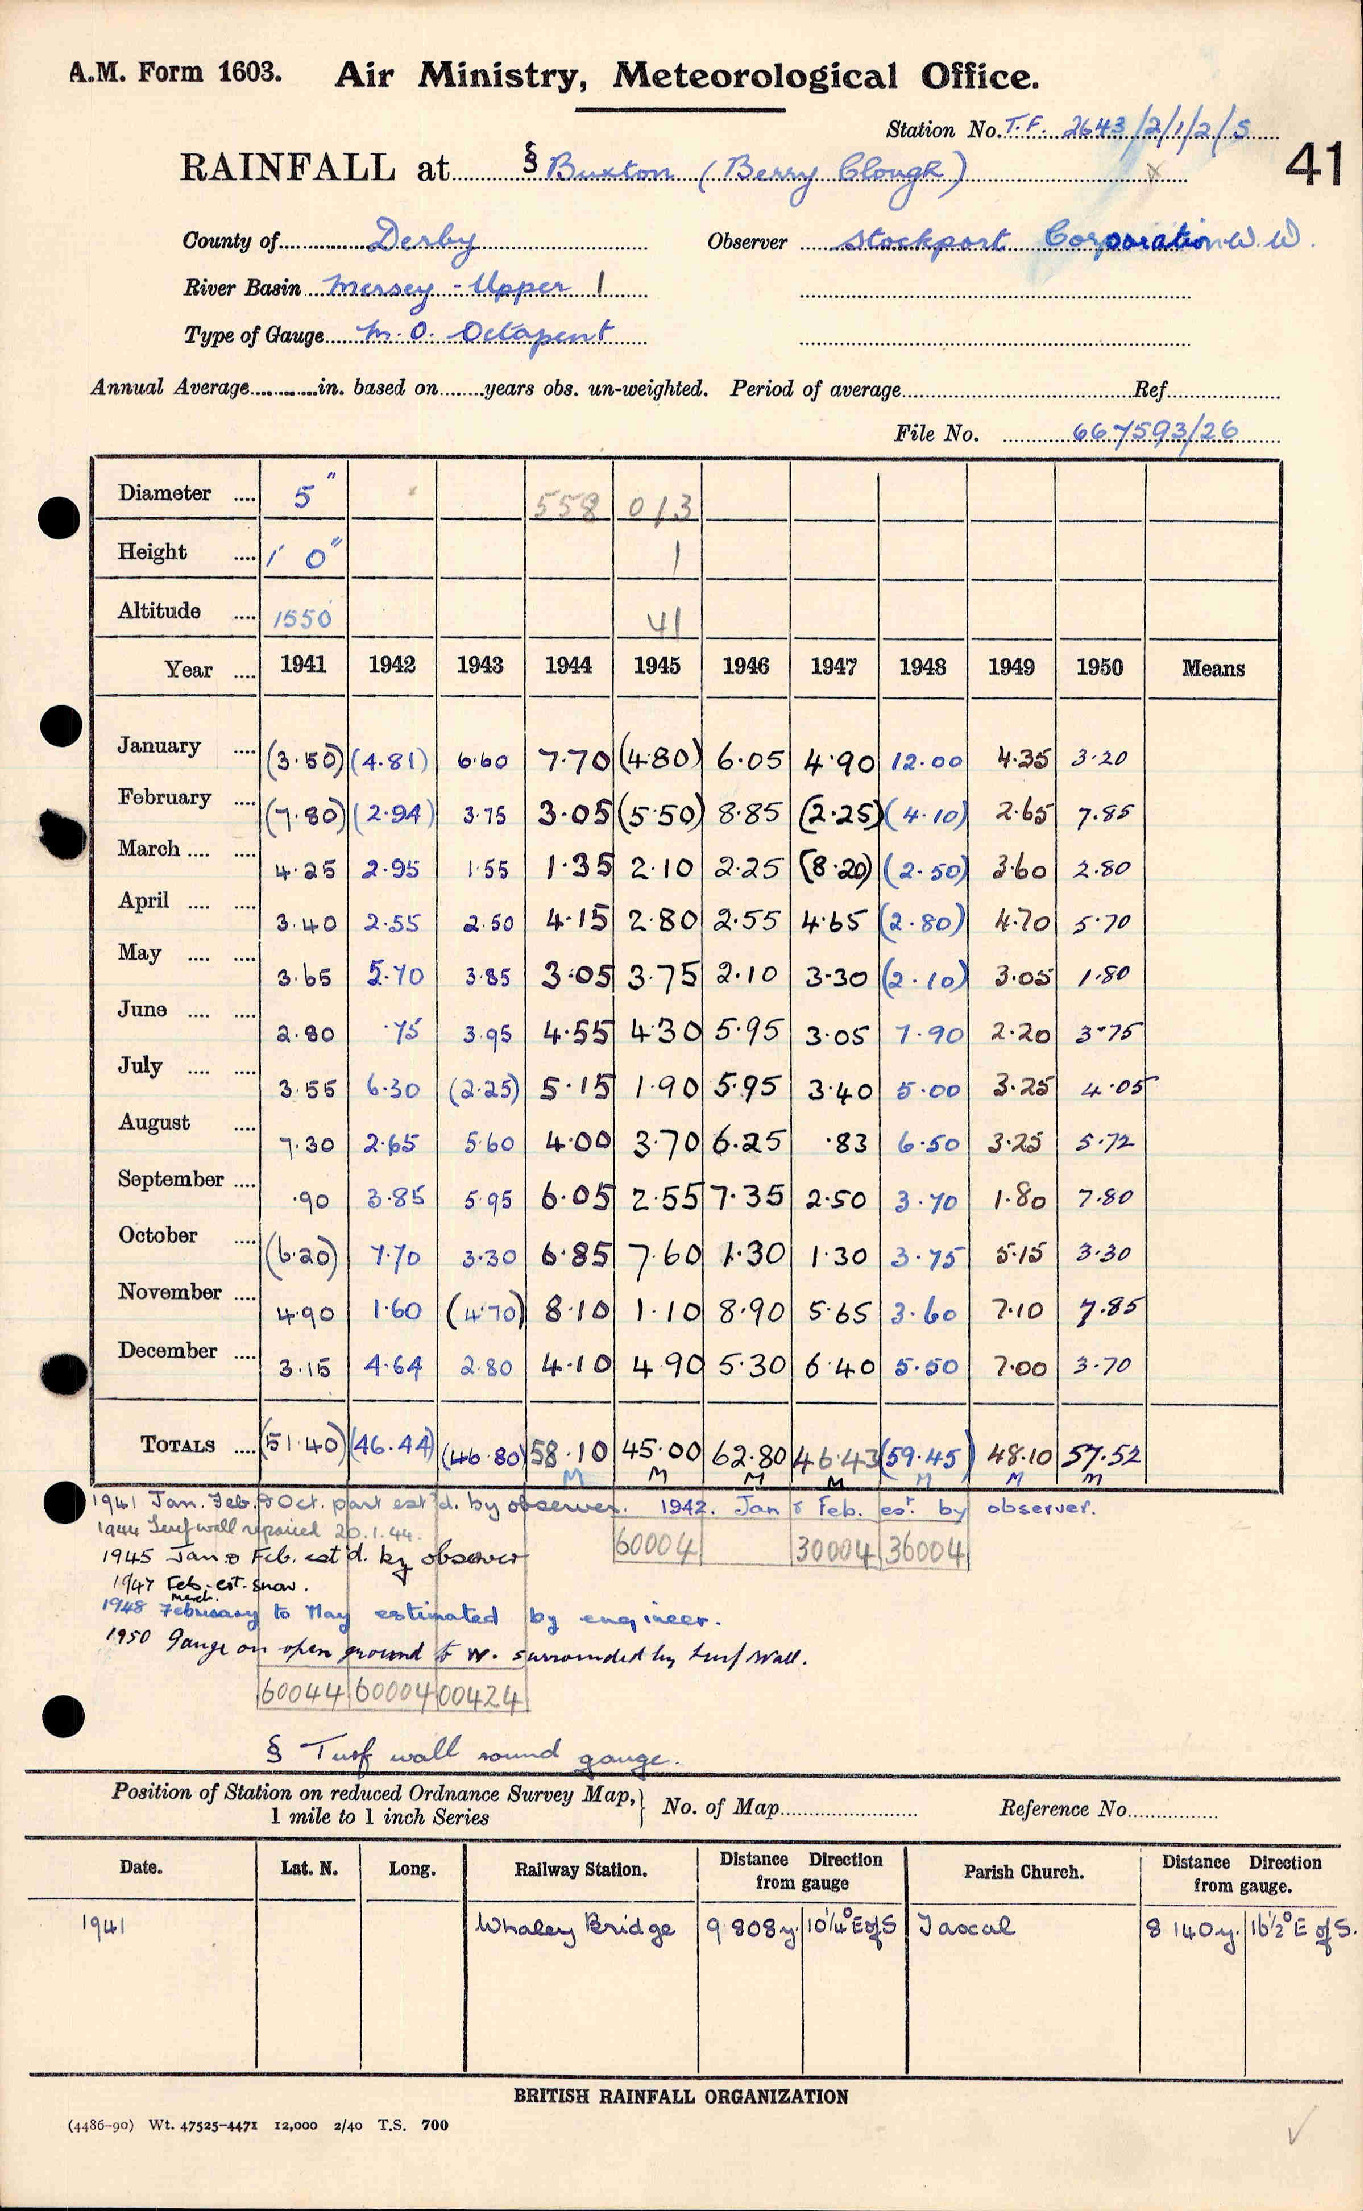 A.M. Form 1603. Air Ministry, Meteorological Office.
Station No. T.F. 2643/2/1/2/5
41
RAINFALL at § Buxton (Berry Clough)
County of Derby Observer Stockport Corporation W.W.
River Basin Mersey - Upper 1
Type of Gauge M.O. Octapent
Annual Average in. based on years obs. un-weighted. Period of average Ref
File No. 667593/26
Diameter 5" 558 013
Height 1' 0" 1
Altitude 1550 41
Year 1941 1942 1943 1944 1945 1946 1947 1948 1949 1950 Means
January (3.50) (4.81) 6.60 7.70 (4.80) 6.05 4.90 12.00 4.35 3.20
February (7.80) (2.94) 3.75 3.05 (5.50) 8.85 (2.25) (4.10) 2.65 7.85
March 4.25 2.95 1.55 1.35 2.10 2.25 (8.20) (2.50) 3.60 2.80
April 3.40 2.55 2.50 4.15 2.80 2.55 4.65 (2.80) 4.70 5.70
May 3.65 5.70 3.85 3.05 3.75 2.10 3.30 (2.10) 3.05 1.80
June 2.80 .75 3.95 4.55 4.30 5.95 3.05 7.90 2.20 3.75
July 3.55 6.30 (2.25) 5.15 1.90 5.95 3.40 5.00 3.25 4.05
August 7.30 2.65 5.60 4.00 3.70 6.25 .83 6.50 3.25 5.72
September .90 3.85 5.95 6.05 2.55 7.35 2.50 3.70 1.80 7.80
October (6.20) 7.70 3.30 6.85 7.60 1.30 1.30 3.75 5.15 3.30
November 4.90 1.60 (4.70) 8.10 1.10 8.90 5.65 3.60 7.10 7.85
December 3.15 4.64 2.80 4.10 4.90 5.30 6.40 5.50 7.00 3.70
TOTALS (51.40) (46.44) (46.80) 58.10 45.00 62.80 46.43 (59.45) 48.10 57.52
M M M M M M M
1941 Jan. Feb. & Oct. part est'd. by observer. 1942. Jan & Feb. est. by observer.
1944 Turf wall repaired 20.1.44.
60004 30004 36004
1945 Jan & Feb. est'd. by observer
1947 Feb. est. snow.
March.
1948 February to May estimated by engineer.
1950 Gauge on open ground to W. surrounded by turf wall.
60044 60004 00424
§ Turf wall round gauge.
Position of Station on reduced Ordnance Survey Map, 1 mile to 1 inch Series } No. of Map Reference No.
Date. Lat. N. Long. Railway Station. Distance Direction from gauge Parish Church. Distance Direction from gauge.
1941 Whaley Bridge 9 808y. 10¼° E of S Taxal 8 140y. 16½° E of S.
BRITISH RAINFALL ORGANIZATION
(4486-90) Wt. 47525-4471 12,000 2/40 T.S. 700